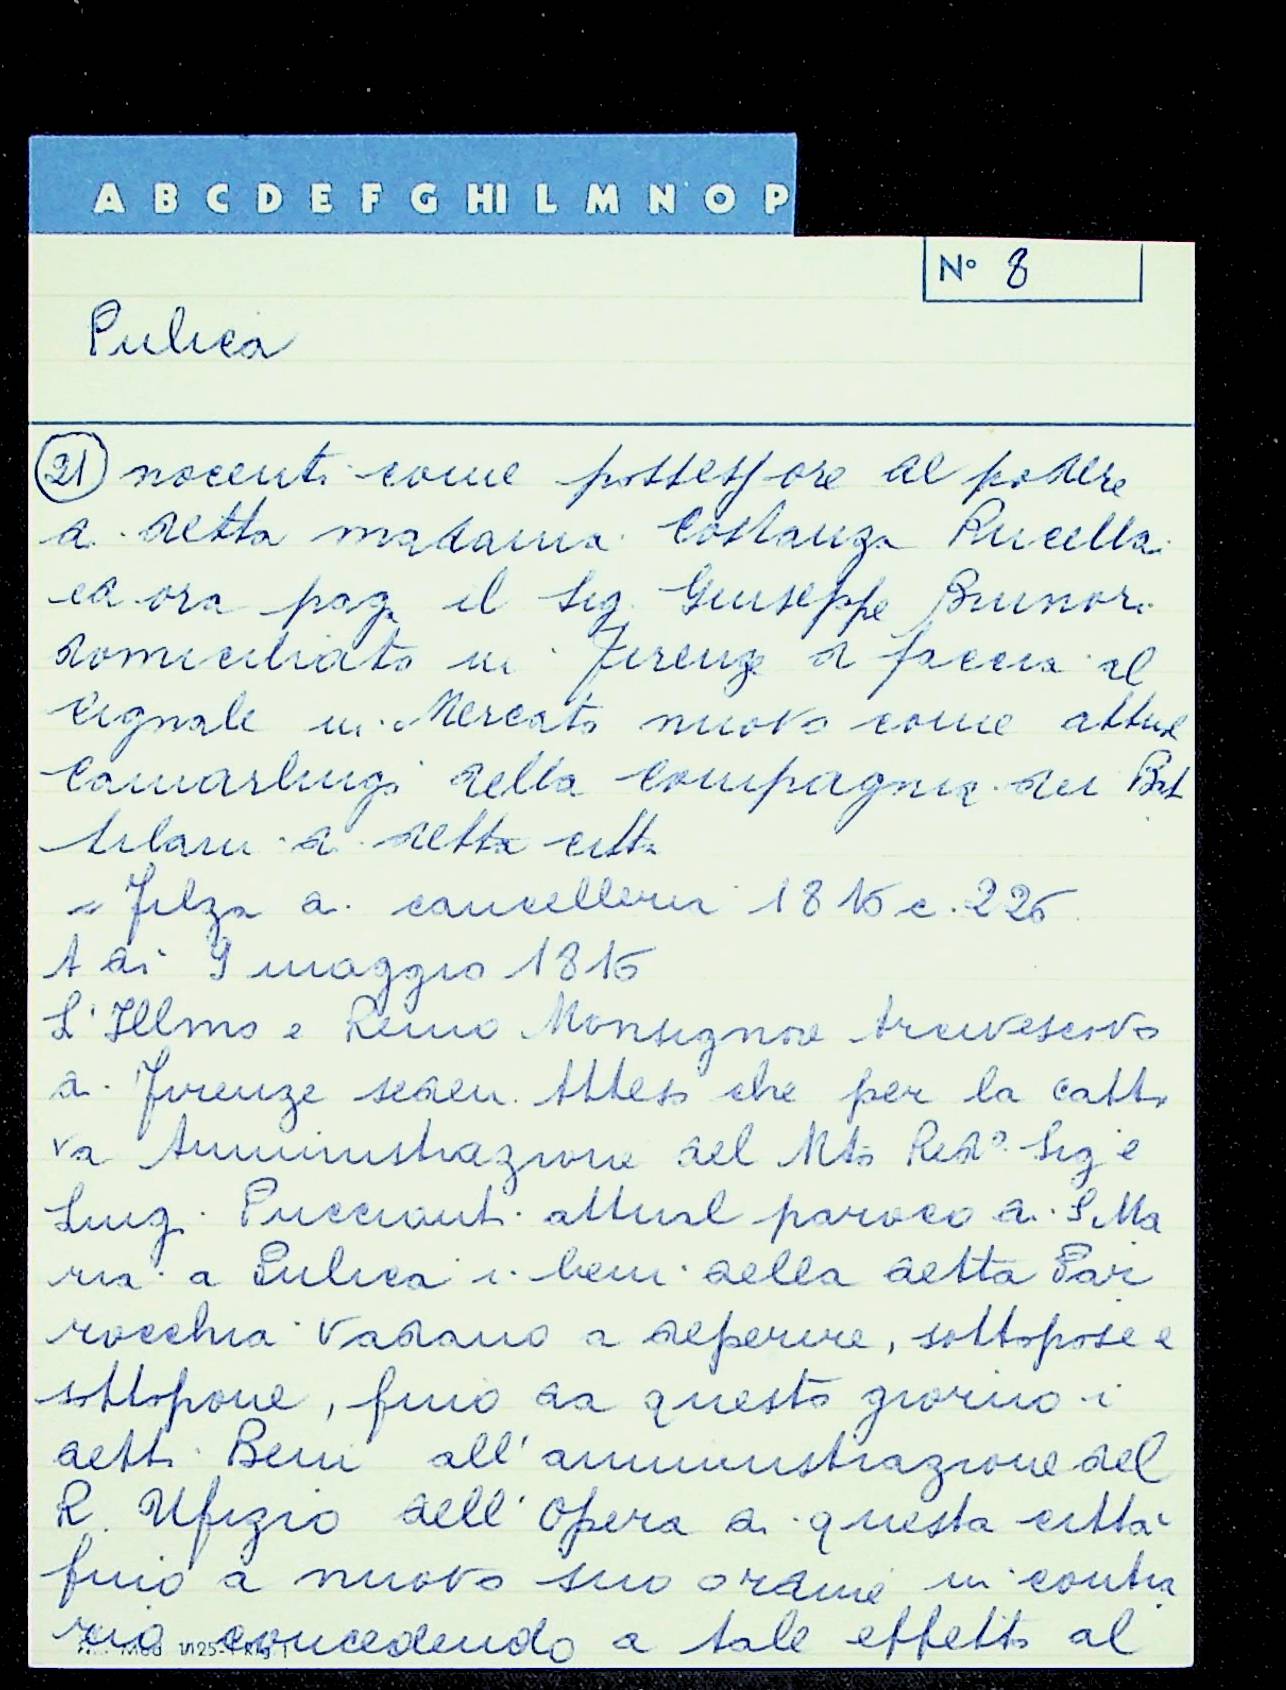 A B C D E F G HI L M N O P
N° 8
Pulica
21 nocenti come possessore del podere
di detta madama Costanza Rucellai
ed ora pag. il Sig. Giuseppe Brunori
domiciliato in Firenze di faccia al
Cignale in Mercato nuovo come attual
Camarlingo della Compagnia dei Bat
tilani di detta città
= Filza di cancelleria 1816 c. 226
A di 9 maggio 1816
L'Illmo e Remo Monsignore Arcivescovo
di Firenze sedeu. Atteso che per la catti
va Amministrazione del Mto Redo Sige
Luigi Pucciant. attual paroco di S. Ma
ria a Pulica i beni della detta Par
rocchia vadano a deperire, sottopose e
sottopone, fino da questo giorno i
detti Beni all'amministrazione del
R. Ufizio dell'Opera di questa città
fino a nuovo suo ordine in contra
rio concedendo a tale effetto al